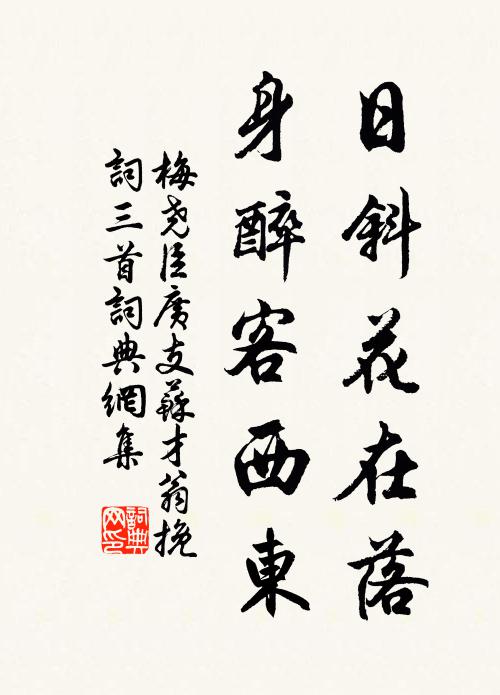 日斜花在落
身醉客西東
梅尧臣廣支蘇才翁挽
詞三首詞典網集
詞典
网印